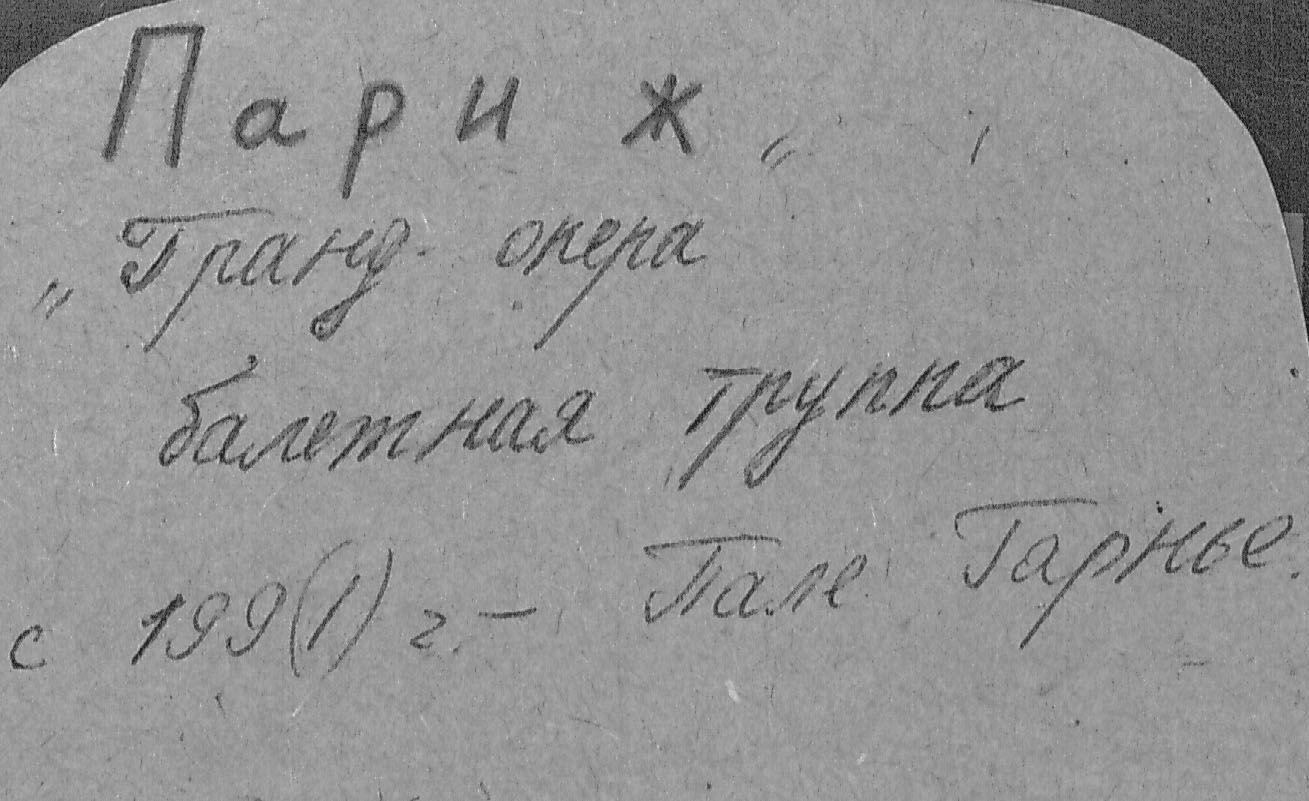 Париж
„Гранд. опера
балетная труппа
с 199(1) г. – Пале Гарнье.